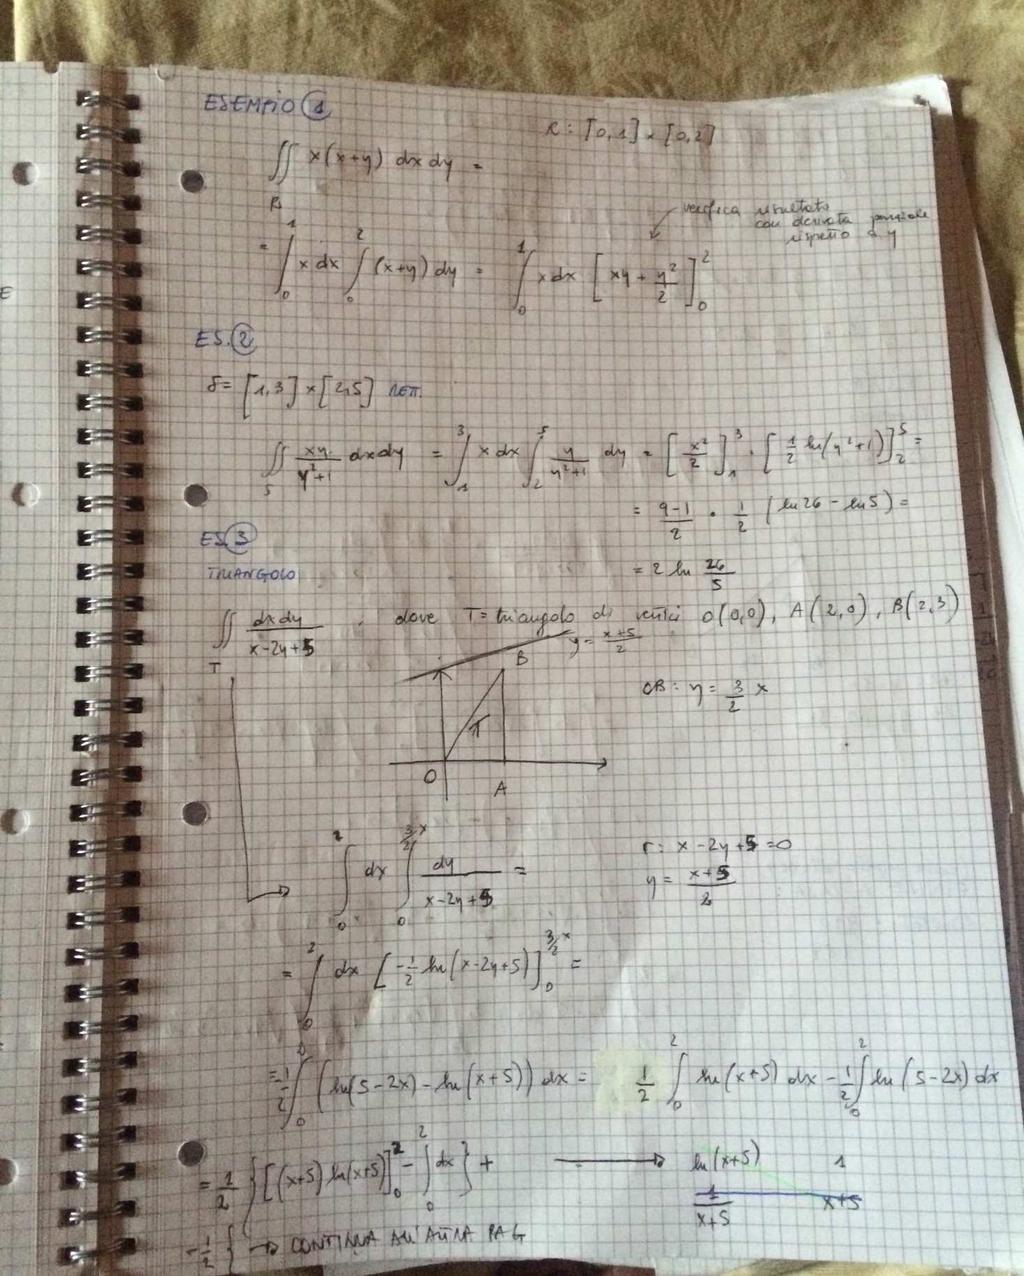 ESEMPIO 1
R: [0,1] × [0,2]
∬ x(x+y) dx dy =
R
verifica risultato
con derivata parziale
rispetto a y
= ∫₀¹ x dx ∫₀² (x+y) dy = ∫₀¹ x dx [xy + y²/2]₀²
ES. 2
S = [1,3] × [2,5] RETT.
∬_S xy/(y²+1) dx dy = ∫₁³ x dx ∫₂⁵ y/(y²+1) dy = [x²/2]₁³ · [1/2 ln(y²+1)]₂⁵ =
= (9-1)/2 · 1/2 (ln26 - ln5) =
= 2 ln 26/5
ES. 3
TRIANGOLO
∬_T dx dy/(x-2y+5), dove T = triangolo di vertici O(0,0), A(2,0), B(2,3)
y = (x+5)/2
B
OB: y = 3/2 x
T
O
A
∫₀² dx ∫₀^(3/2 x) dy/(x-2y+5) =
r: x-2y+5=0
y = (x+5)/2
= ∫₀² dx [-1/2 ln(x-2y+5)]₀^(3/2 x) =
= -1/2 ∫₀² (ln(5-2x) - ln(x+5)) dx = 1/2 ∫₀² ln(x+5) dx - 1/2 ∫₀² ln(5-2x) dx
= 1/2 { [(x+5) ln(x+5)]₀² - ∫₀² dx } + → ln(x+5) 1
1/(x+5) x+5
-1/2 { → CONTINUA ALL'ALTRA PAG